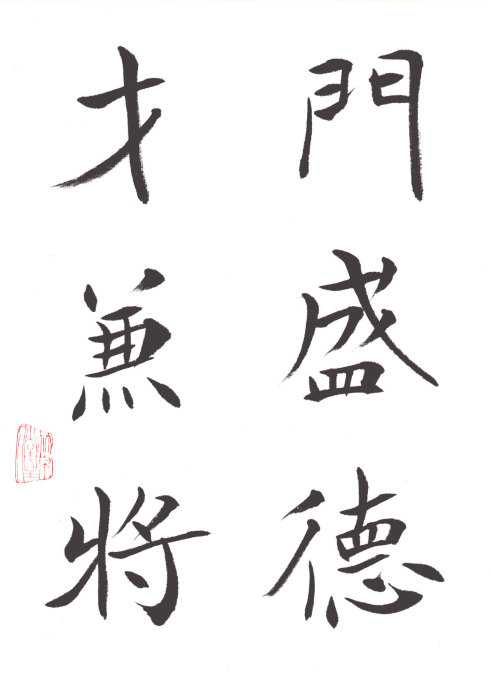 門盛德
才兼將